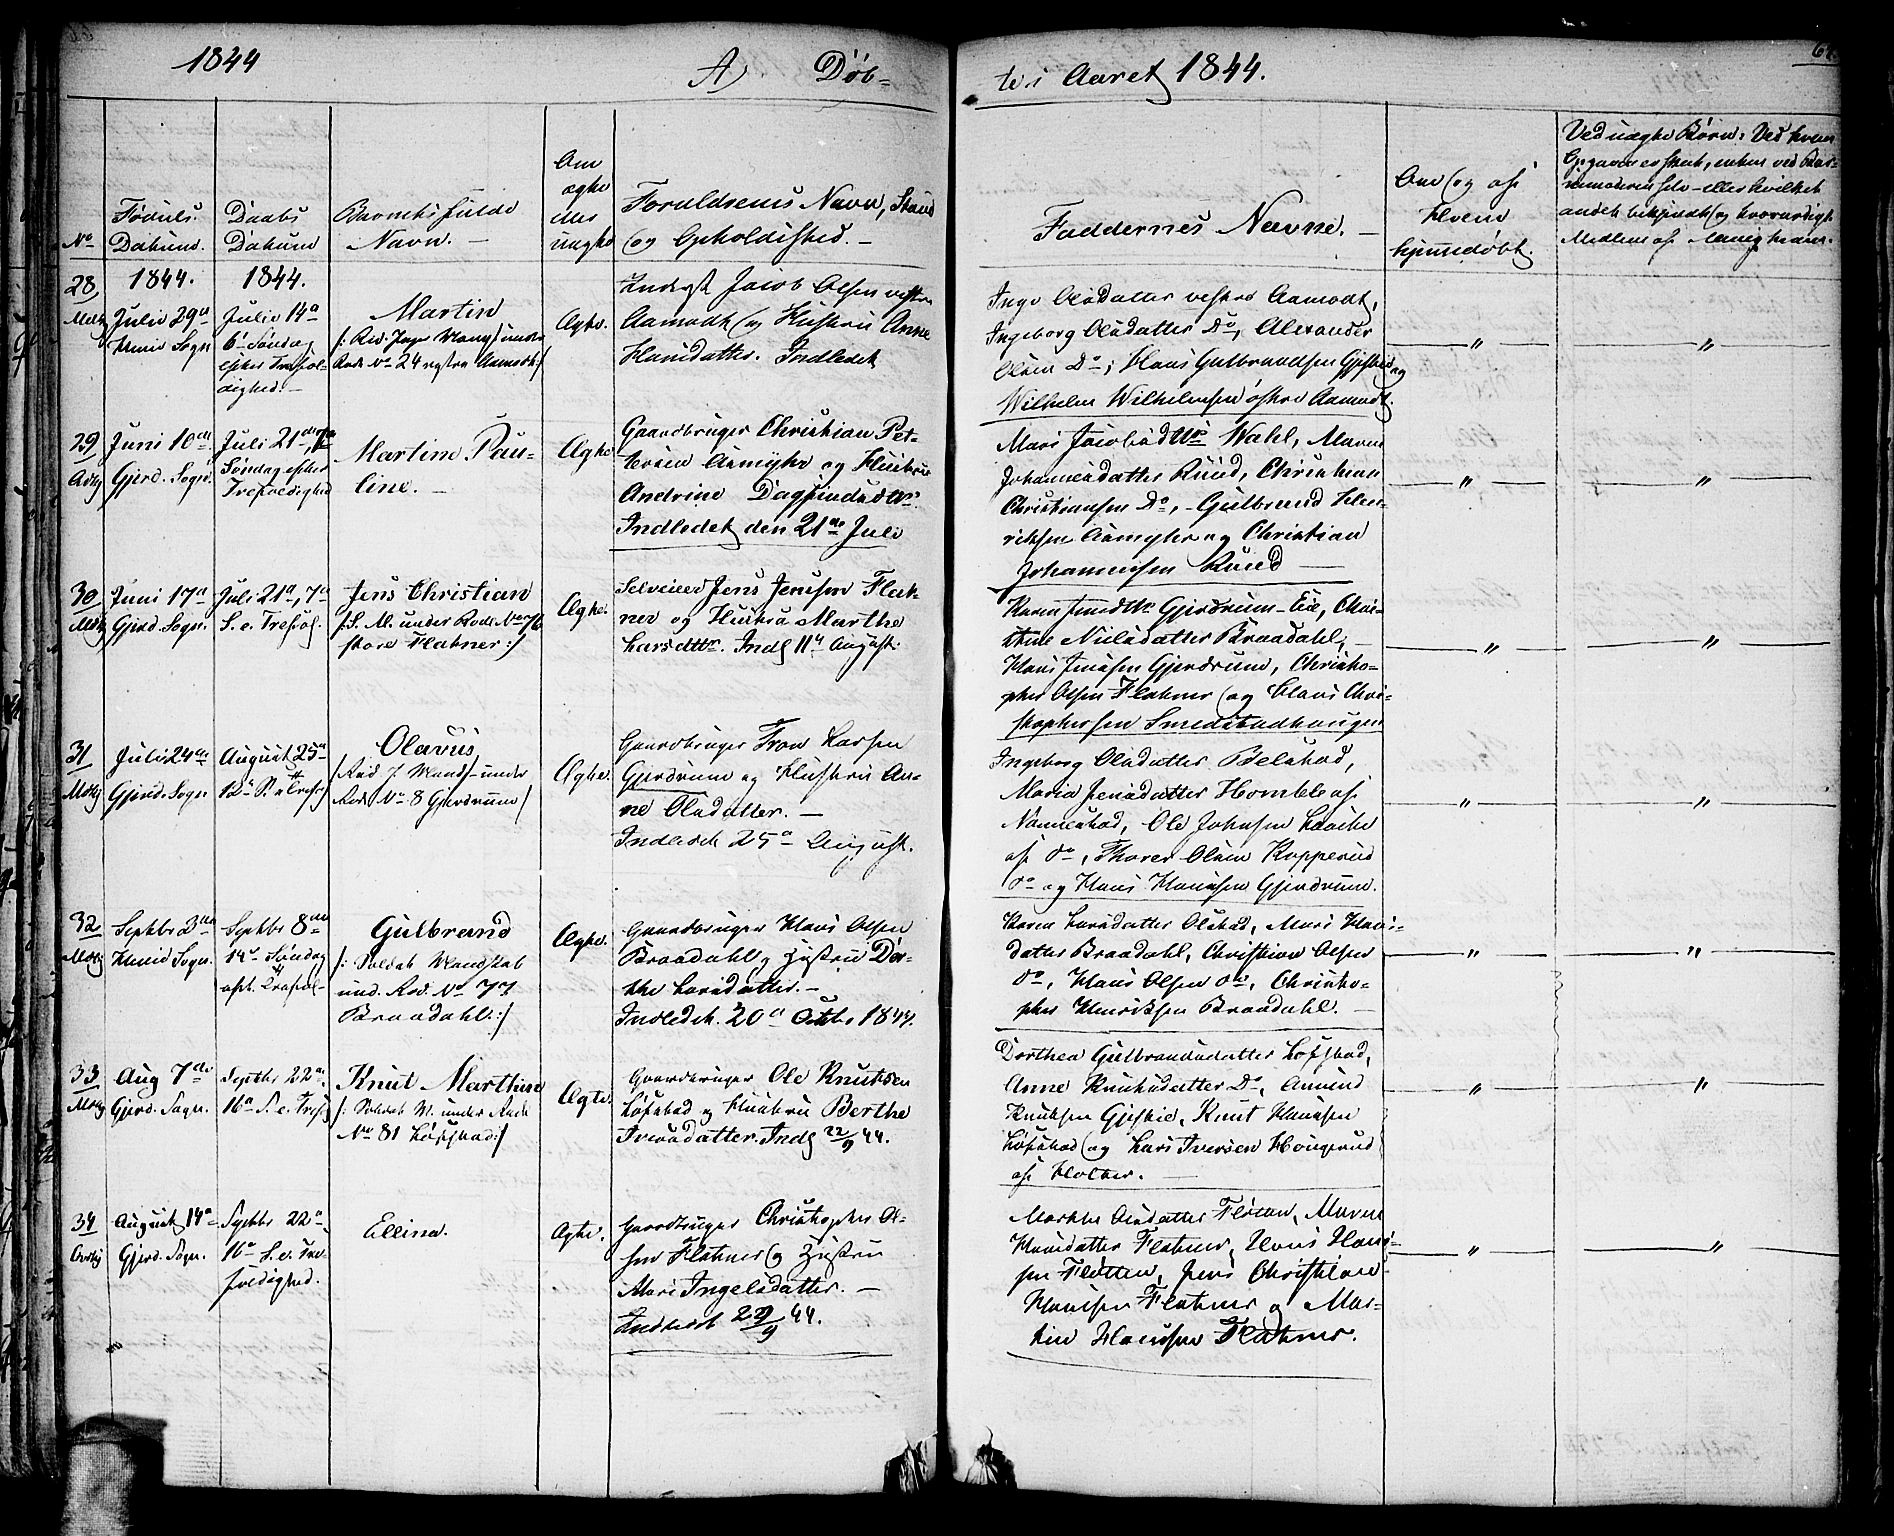 1844
A) Døb-
te i Aaret 1844.
No
Fødsels
Datum.
Daabs
Datum
Barnets fulde
Navn. —
Om
ægte
eller
uægte
Forældrenes Navn, Stand
og Opholdssted. —
Faddernes Navne. —
Om og af
hvem
hjemmedøbt.
Ved uægte Børn: Ved hvem
Opgaven er skeet, enten ved Bar-
nemoderen selv eller hvilket
andet bekjendt og troværdigt
Medlem af Menigheden.
28
1844.
Julii
Sogn
1844.
Julii 14de
6te Søndag
efter Trefol-
dighed. —
Martin
Rode No 24 vestre Aamodt
Ægte.
Jacob Olsen vestre
Aamodt og Hustru Anne
Hansdatter. Indledet
Olsdatter vestre Aamodt,
Ingeborg Olsdatter Do, Alexander
Olsen Do; Hans Gulbrandsen
Wilhelm Wilhelmsen østre Aamodt.
29
Juni 10de
Gjerd. Sogn.
Juli 21de, 7de
Søndag efter
Trefoldighed
Martine Pau-
line. —
Ægte
Gaardbruger Christian Pet-
ersen Aamyhr og Hustru
Andrine Dagfindsdtr.
Indledet den 21de Juli
Mari Jacobsdtr Wahl, Maren
Johannesdatter Ruud, Christian
Christiansen Do, Gulbrand Hen-
riksen Aamyhr og Christian
Johannesen Ruud
30
Juni 17de
Gjerd. Sogn.
Juli 21de, 7de
S. e. Trefol.
Jens Christian
/: S. M. under Rode No 76
store Flatner :/
Ægte.
Jens Jensen Flat-
ner og Hustru Marthe
Larsdtr. Indl 11te August.
Karen Gjerdrum-Eie, Chri-
stine Nielsdatter Braadahl,
Hans Jensen Gjerdrum, Christo-
pher Olsen Flatner og Claus Chri-
stophersen Smedstadhaugen
31
Juli 24de
Gjerd. Sogn
August 25de
Olavus
under
Rode No 8 Gjerdrum /
Ægte.
Gaardbruger Iver Larsen
Gjerdrum og Hustru An-
ne Olsdatter. —
Indledet 25de August.
Ingeborg Olsdatter
Maria Jensdatter Homble af
Nannestad, Ole Johnsen
af do, Thorer Olsen Kopperud
do og Hans Hansen Gjerdrum.
32
Septbr 3die
Sogn.
Septbr 8de
14de Søndag
eft. Trefol-
Gulbrand
/: Soldat Mandskab
und. Rod. No 77
Braadahl :/
Ægte.
Gaardbruger Hans Olsen
Braadahl og Hustru Dor-
the Larsdatter. —
Indledet. 20de Octbr 1844.
Karen Larsdatter Olstad, Mari Hans-
datter Braadahl, Christian Olsen
do, Hans Olsen do, Christo-
pher Henriksen Braadahl.
33
Aug 7de
Gjerd. Sogn.
Septbr 22de
16de S. e. Tref
Knut Martin
/: Soldat M. under Rode
No 81 Løfstad :/
Ægte.
Gaardbruger Ole Knutsen
Løfstad og Hustru Berthe
Iversdatter. Indl 22/9 44.
Dorthea Gulbrandsdatter Løfstad,
Anne Knutsdatter Do, Amund
Knutsen Gjestad, Knut Hansen
Løfstad og Lars Iversen Hougerud
af Holter.
34
August 14de
Gjerd. Sogn.
Septbr 22de
16de S. e. Tre-
foldighed.
Ellina.
Ægte.
Gaardbruger Christopher Ol-
sen Flatner og Hustru
Mari Ingelsdatter. —
Indledet 29/9 44.
Marthe Olsdatter Flotten, Maren
Hansdatter Flatner, Hans Han-
sen Flotten, Jens Christian
Hansen Flatner og Mar-
tin Hansen Flatner.